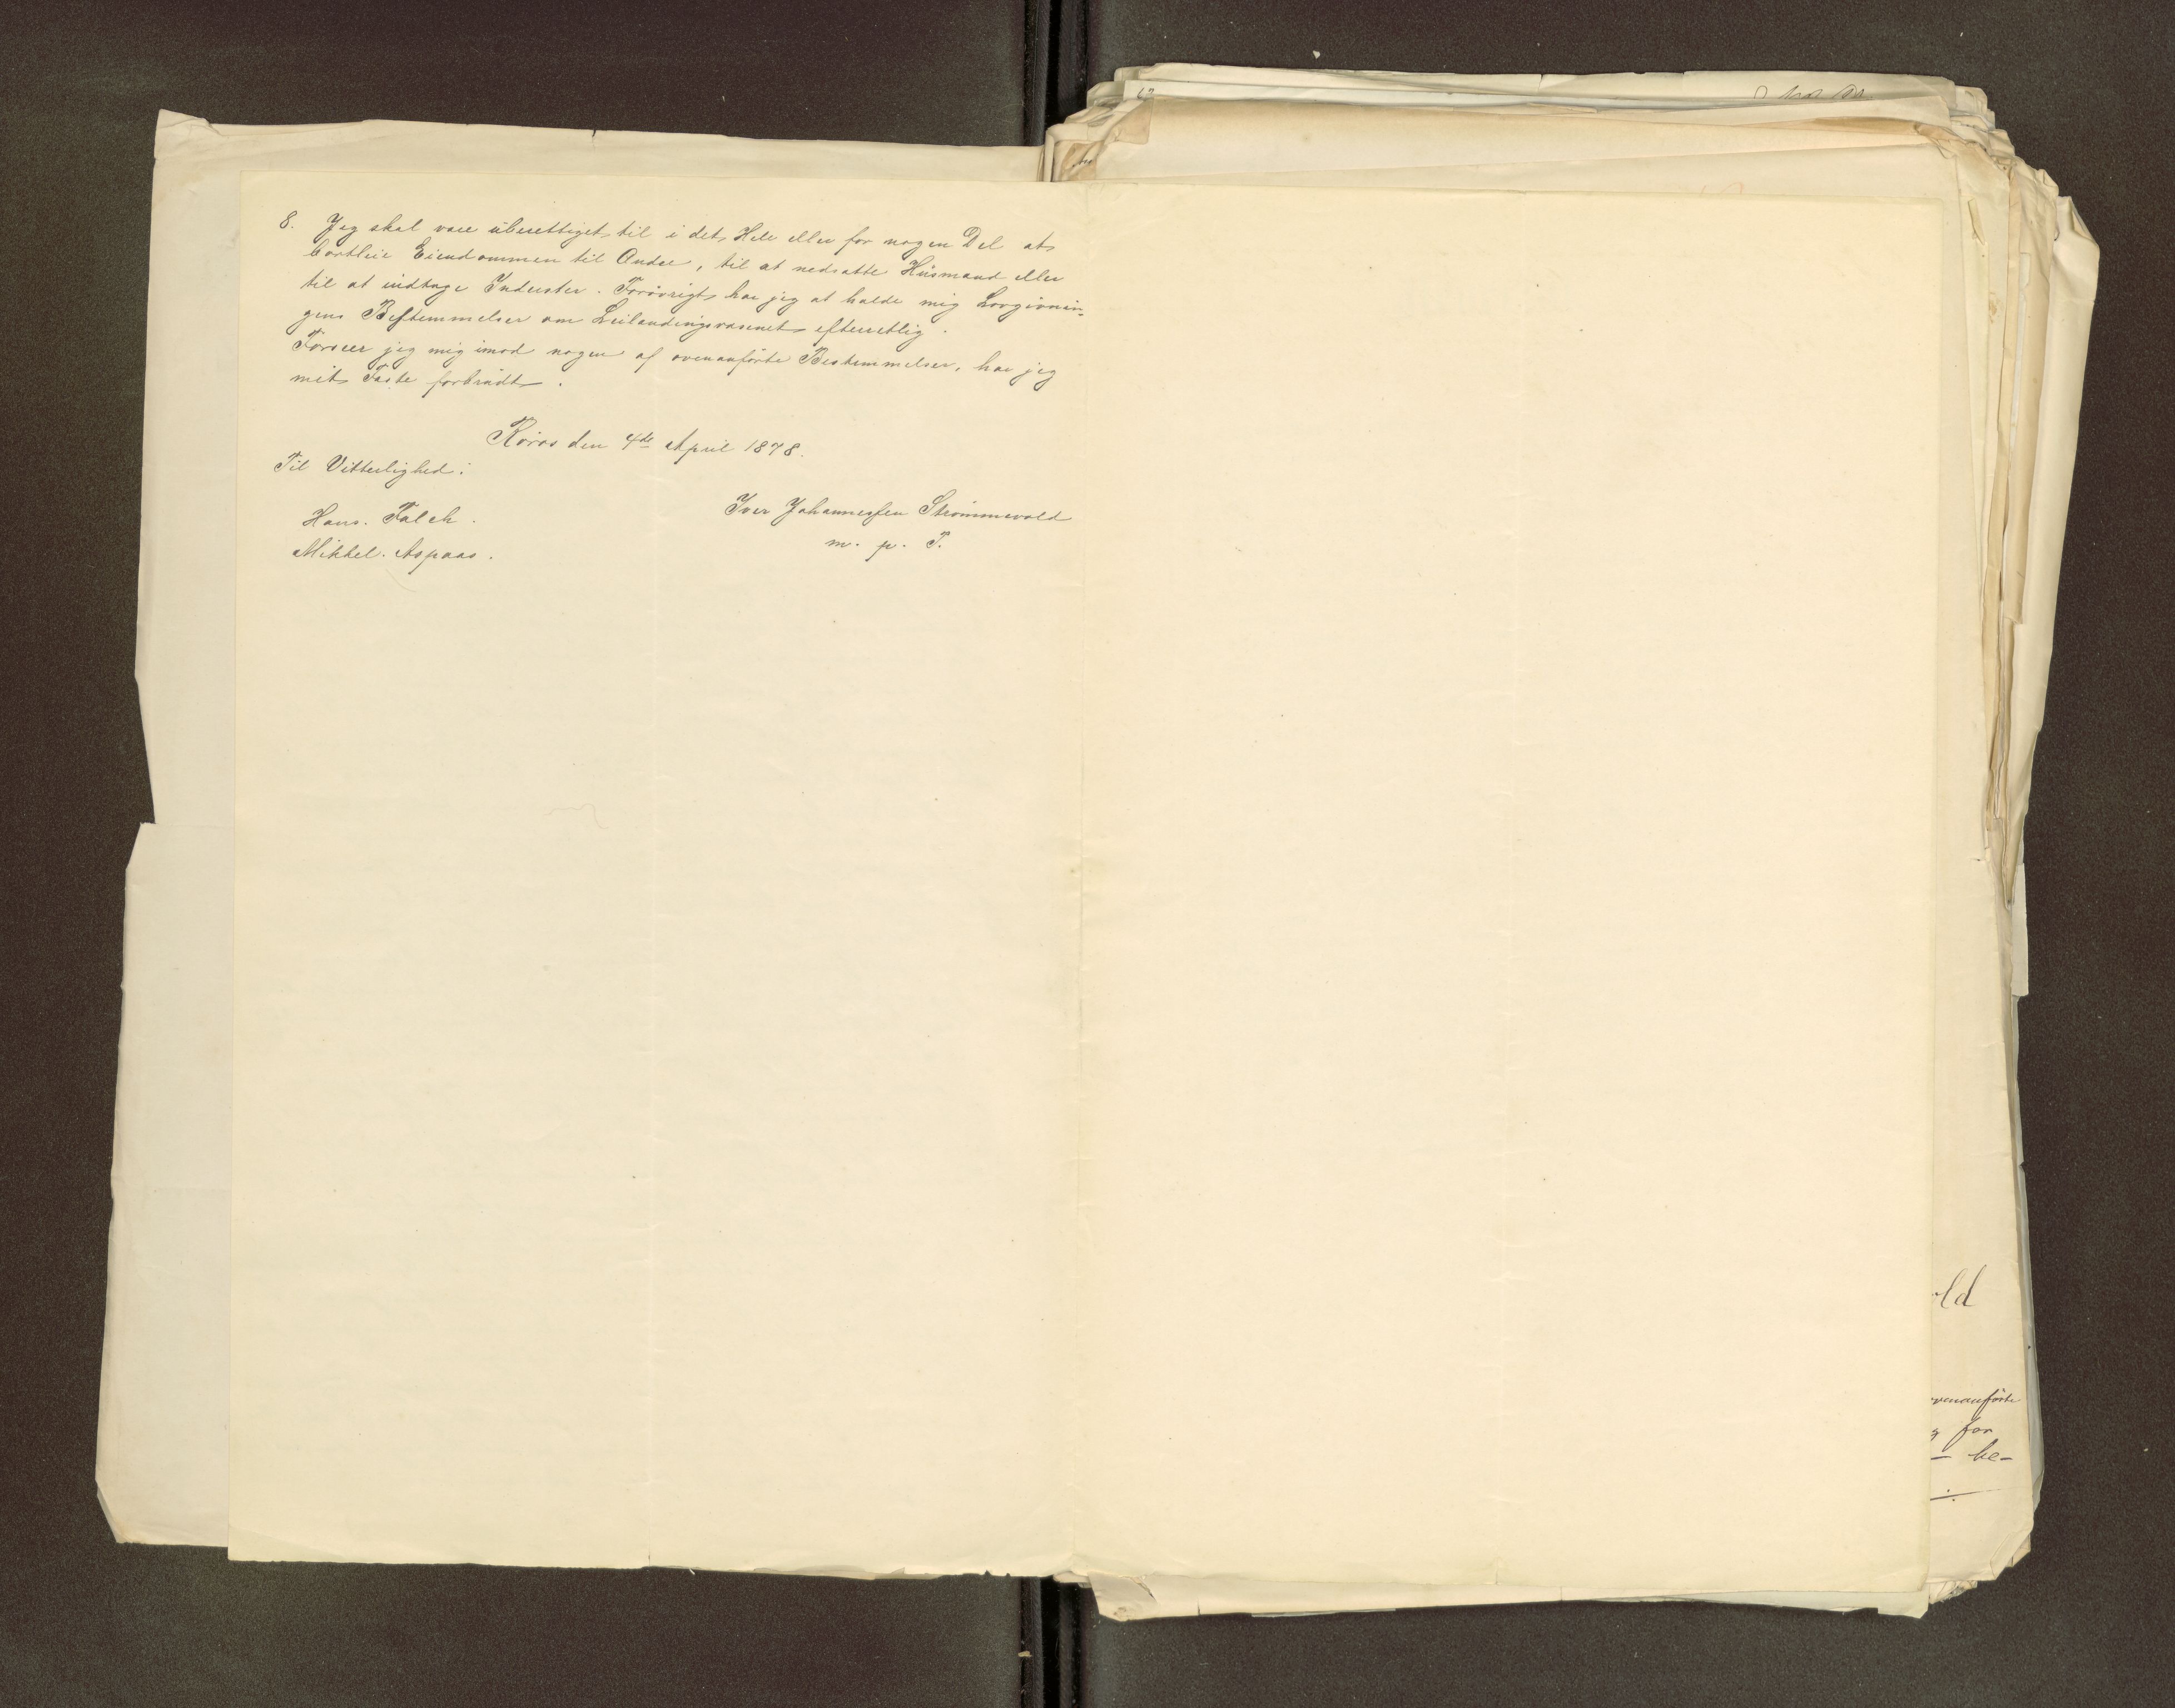 8. Jeg skal være uberettiget til i det Hele eller for nogen Del at
bortleie Eiendommen til Andre, til at nedsætte Husmænd eller
til at indtage Inderster. Forøvrigt har jeg at holde mig Lovgivnin-
gens Bestemmelser om Leilændingsvæsenet efterrettlig.
Forseer jeg mig imod nogen af ovenanførte Bestemmelser, har jeg
mit Fæste forbrudt.
Røros den 4de April 1878.
Til Vitterlighed:
Hans. Falch.
Mikkel. Aspaas.
Iver Johannessen Strømmevold
m. p. P.
old
ovenanførte
for
be-